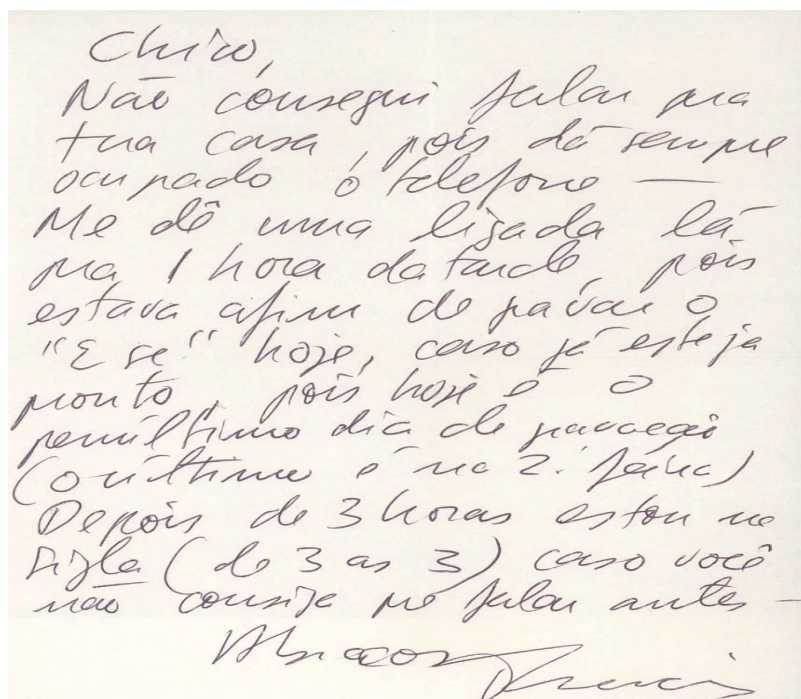 Chico,
Não consegui falar pra
tua casa, pois dá sempre
ocupado o telefone —
Me dê uma ligada lá
pra 1 hora da tarde, pois
estava afim de gravar o
"E se" hoje, caso já esteja
pronto, pois hoje é o
penúltimo dia de gravação
(o último é na 2ª feira)
Depois de 3 horas estou na
Sigla (de 3 as 3) caso você
não consiga me falar antes —
Abraços Francis